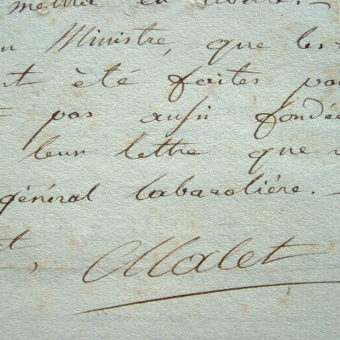 mettra en
Ministre, que les
été faites
pas aussi fondée
leur lettre que
général Labarolière. —
Malet